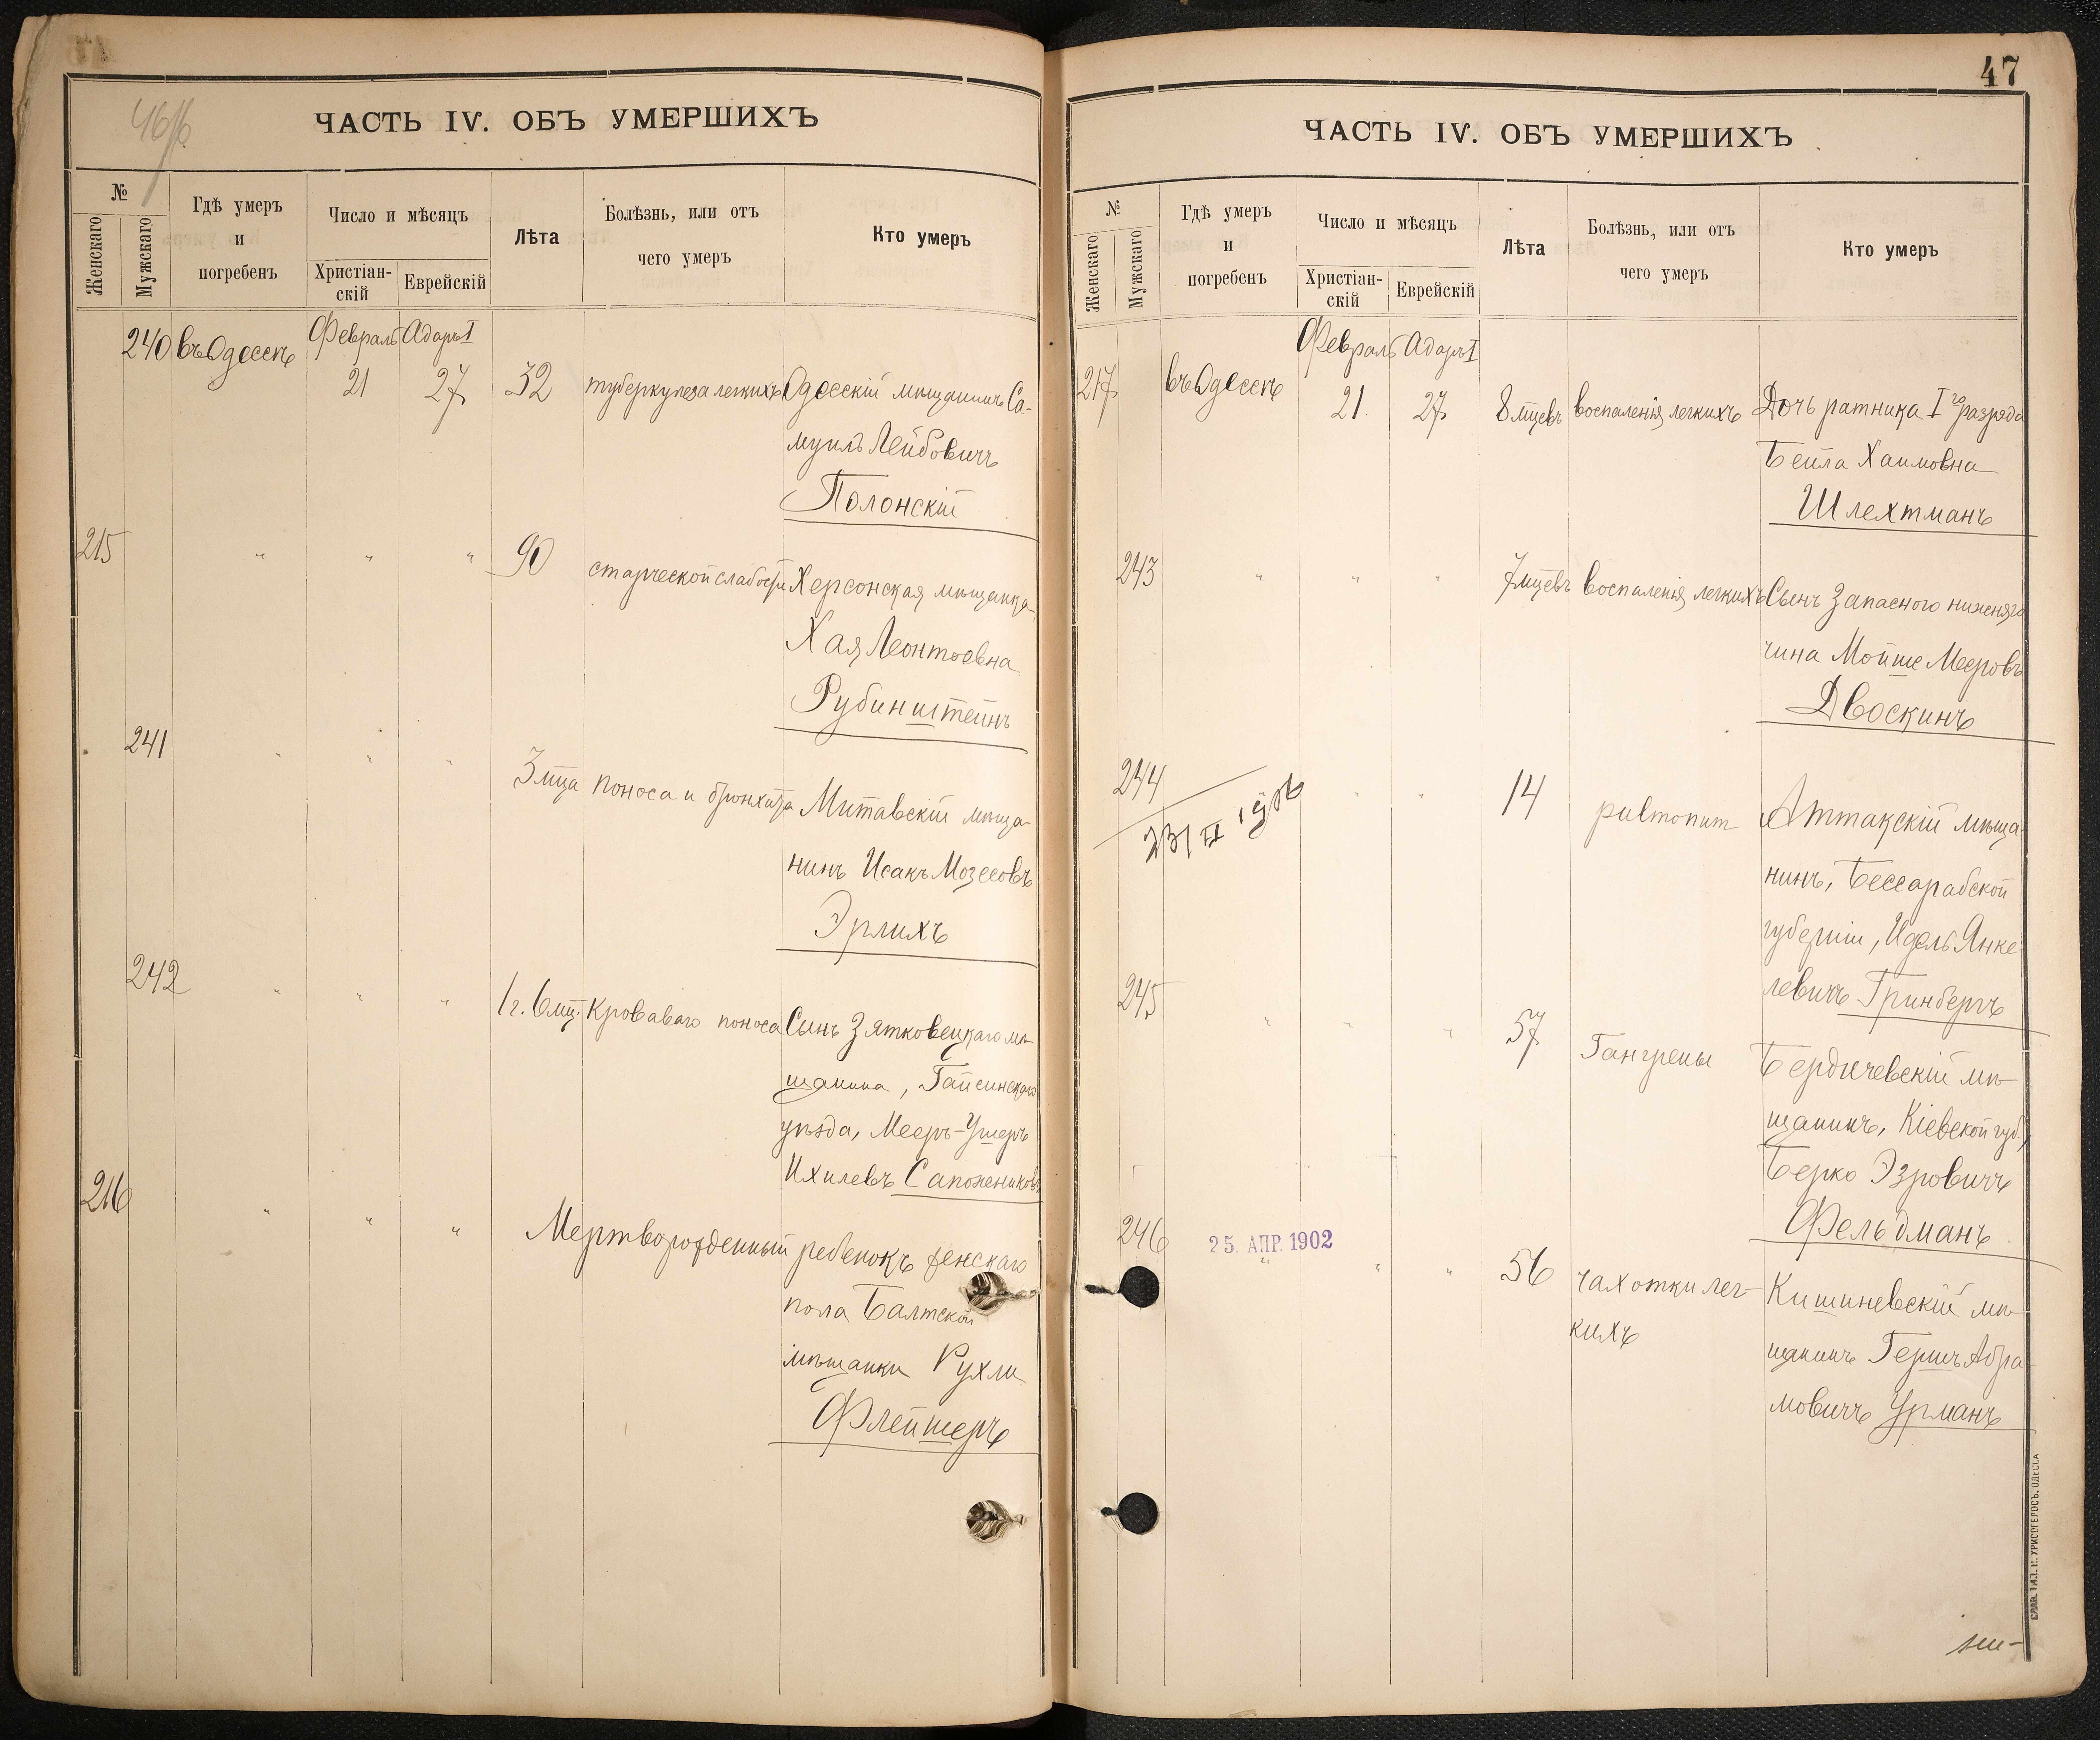 ЧАСТЬ IV. ОБЪ УМЕРШИХЪ
№
Женскаго
Мужскаго
Гдѣ умеръ
и
погребенъ
Число и мѣсяцъ
Христіан-
скій
Еврейскій
Лѣта
Болѣзнь, или отъ
чего умеръ
Кто умеръ
Февраль Адаръ I
240 въ Одессѣ 21 27 32 туберкулеза легкихъ Одесскій мѣщанинъ Са-
муилъ Лейбовичъ
Полонскій
215 " " " 90 старческой слабости Херсонская мѣщанка
Хая Леонтьевна
Рубинштейнъ
241 " " " 3 мца поноса и бронхита Митавскій мѣща-
нинъ Исакъ Мозесовъ
Эрлихъ
242 " " " 1 г. 6 мц. Кроваваго поноса Сынъ Зятковецкаго мѣ-
щанина, Гайсинскаго
уѣзда, Мееръ-Ушеръ
Ихилевъ Сапожниковъ
216 " " " Мертворожденный ребенокъ женскаго
пола Балтской
мѣщанки Рухли
Флейшеръ
47
ЧАСТЬ IV. ОБЪ УМЕРШИХЪ
№
Женскаго
Мужскаго
Гдѣ умеръ
и
погребенъ
Число и мѣсяцъ
Христіан-
скій
Еврейскій
Лѣта
Болѣзнь, или отъ
чего умеръ
Кто умеръ
Февраль Адаръ I
217 въ Одессѣ 21 27 8 мцевъ воспаленія легкихъ Дочь ратника I го разряда
Бейла Хаимовна
Шлехтманъ
243 " " " 7 мцевъ воспаленія легкихъ Сынъ запасного нижняго
чина Мойше Мееровъ
Двоскинъ
244 " " 14 Аттакскій мѣща-
нинъ, Бессарабской
губерніи, Идель Янке-
левичъ Гринбергъ
245 " " " 57 Гангрены Бердичевскій мѣ-
щанинъ, Кіевской губ.,
Берко Эзровичъ
Фельдманъ
246 25. АПР. 1902
" " " 56 чахотки лег-
кихъ
Кишиневскій мѣ-
щанинъ Гершъ Абра-
мовичъ Урманъ